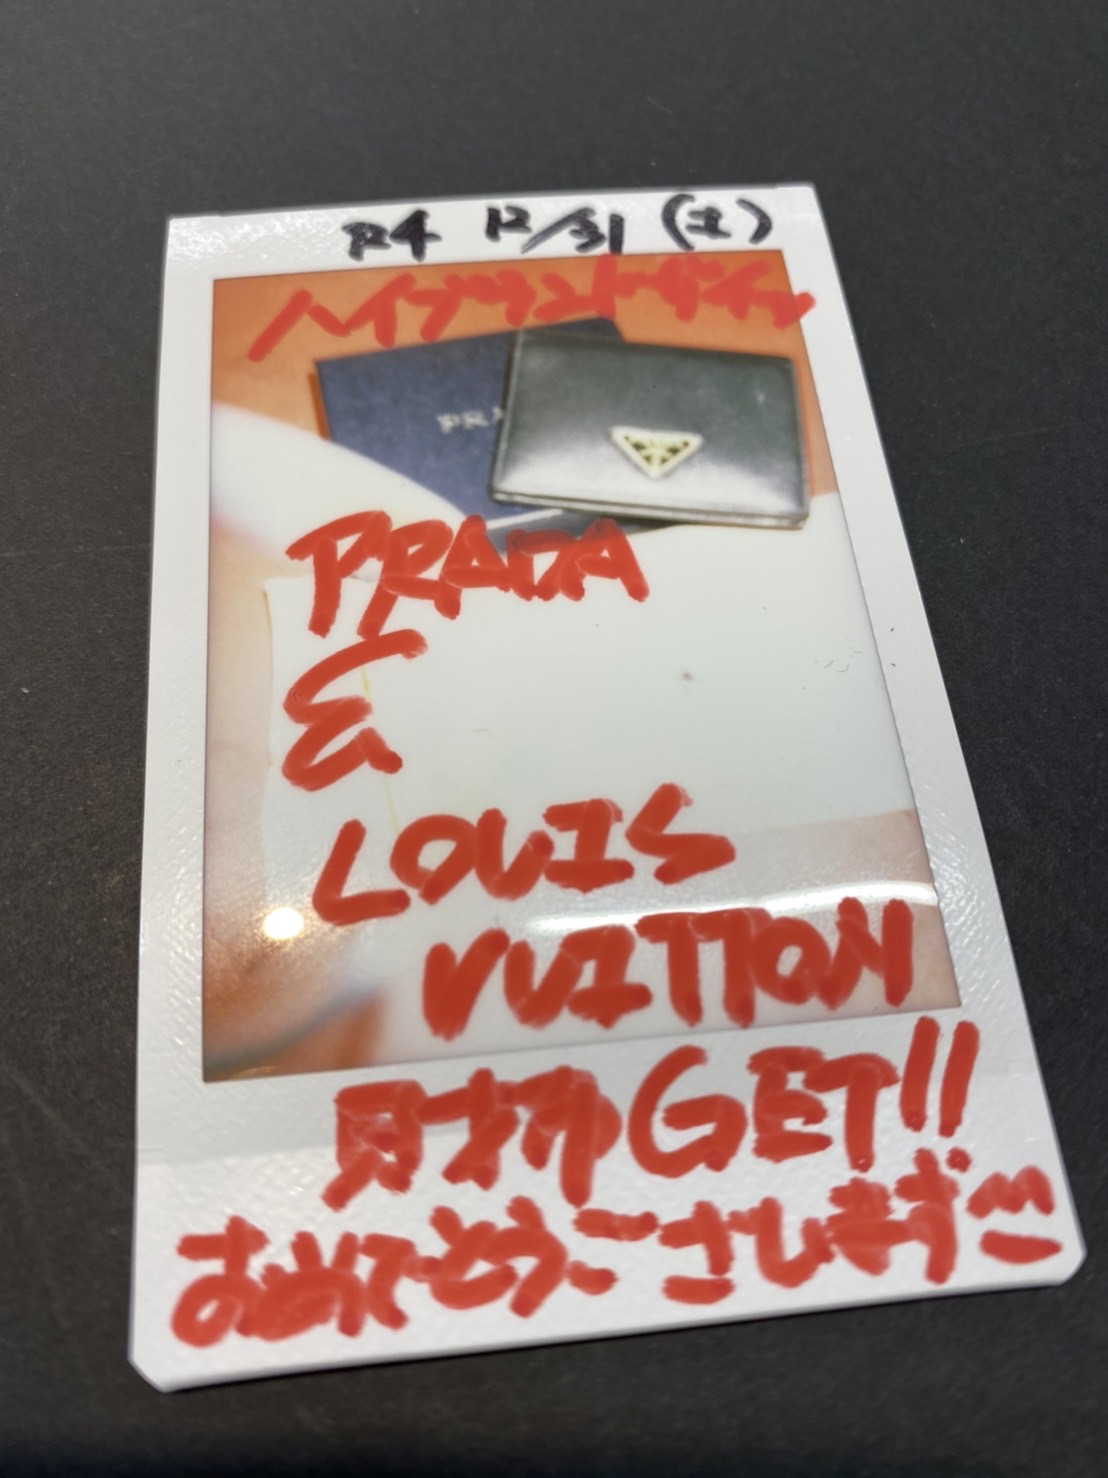 R4 12/31 (土)
ハイブランドサイフ
PRA
PRADA
&
LOUIS
VUITTON
財布GET!!
おめでとうございます!!!